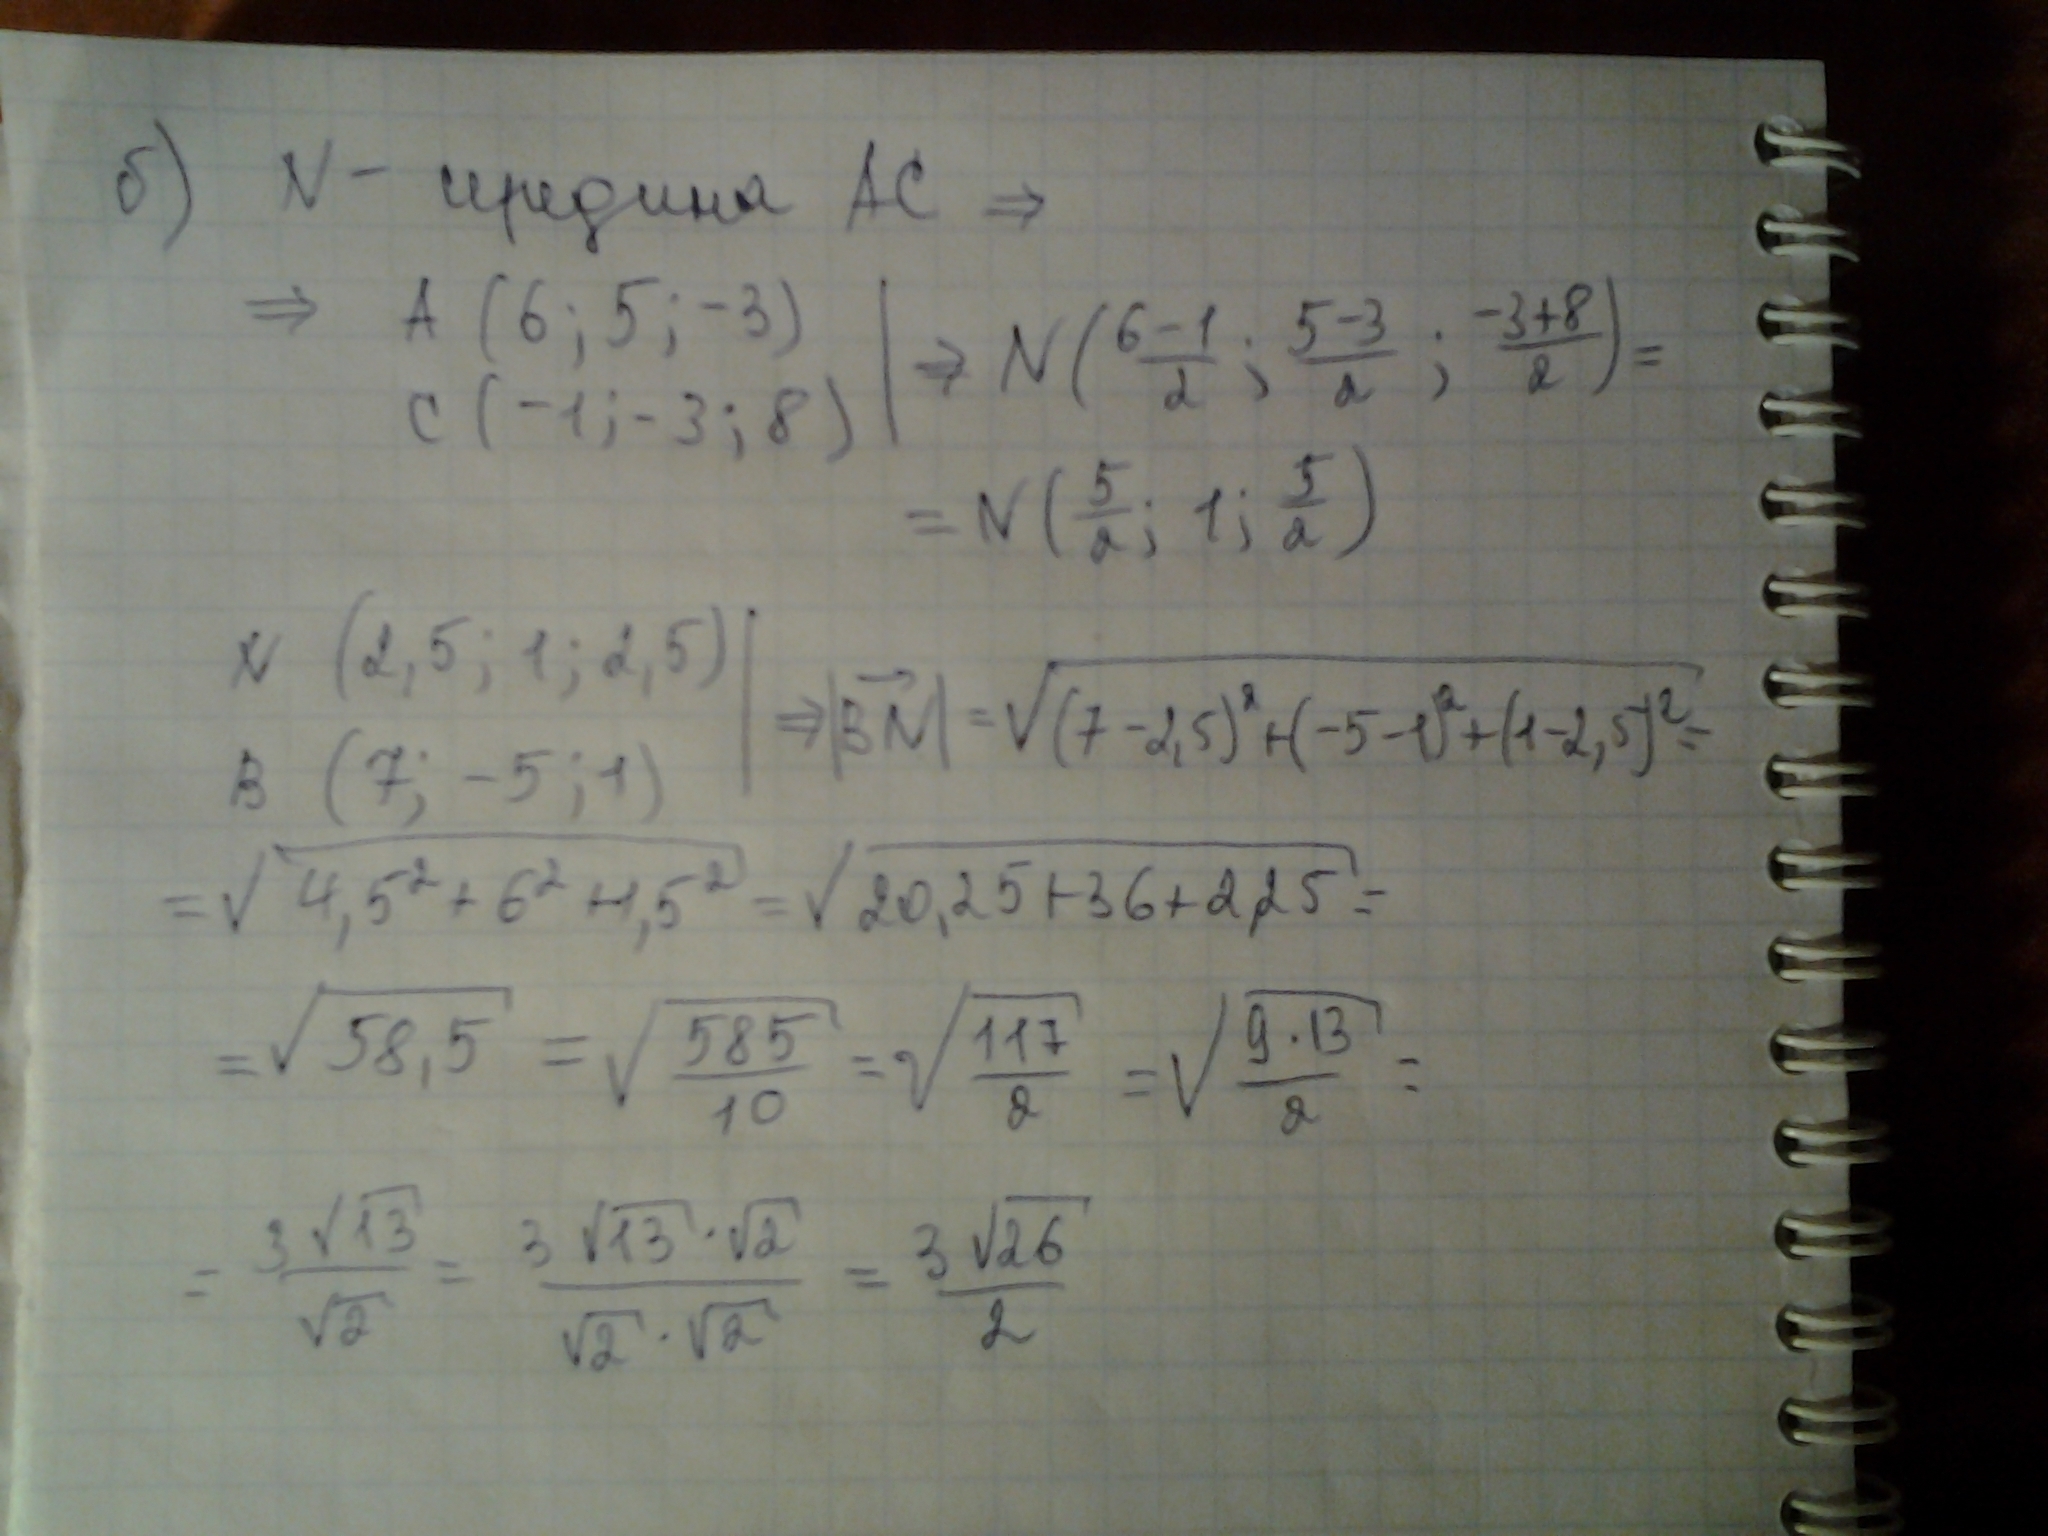 б) N - середина AC ⇒
⇒ A (6; 5; -3) | ⇒ N((6-1)/2; (5-3)/2; (-3+8)/2) =
C (-1; -3; 8)
= N(5/2; 1; 5/2)
N (2,5; 1; 2,5) | ⇒ |BN| = √((7-2,5)²+(-5-1)²+(1-2,5)²) =
B (7; -5; 1)
= √(4,5² + 6² + 1,5²) = √(20,25+36+2,25) =
= √(58,5) = √(585/10) = √(117/2) = √((9·13)/2) =
= 3√13/√2 = (3√13·√2)/(√2·√2) = 3√26/2